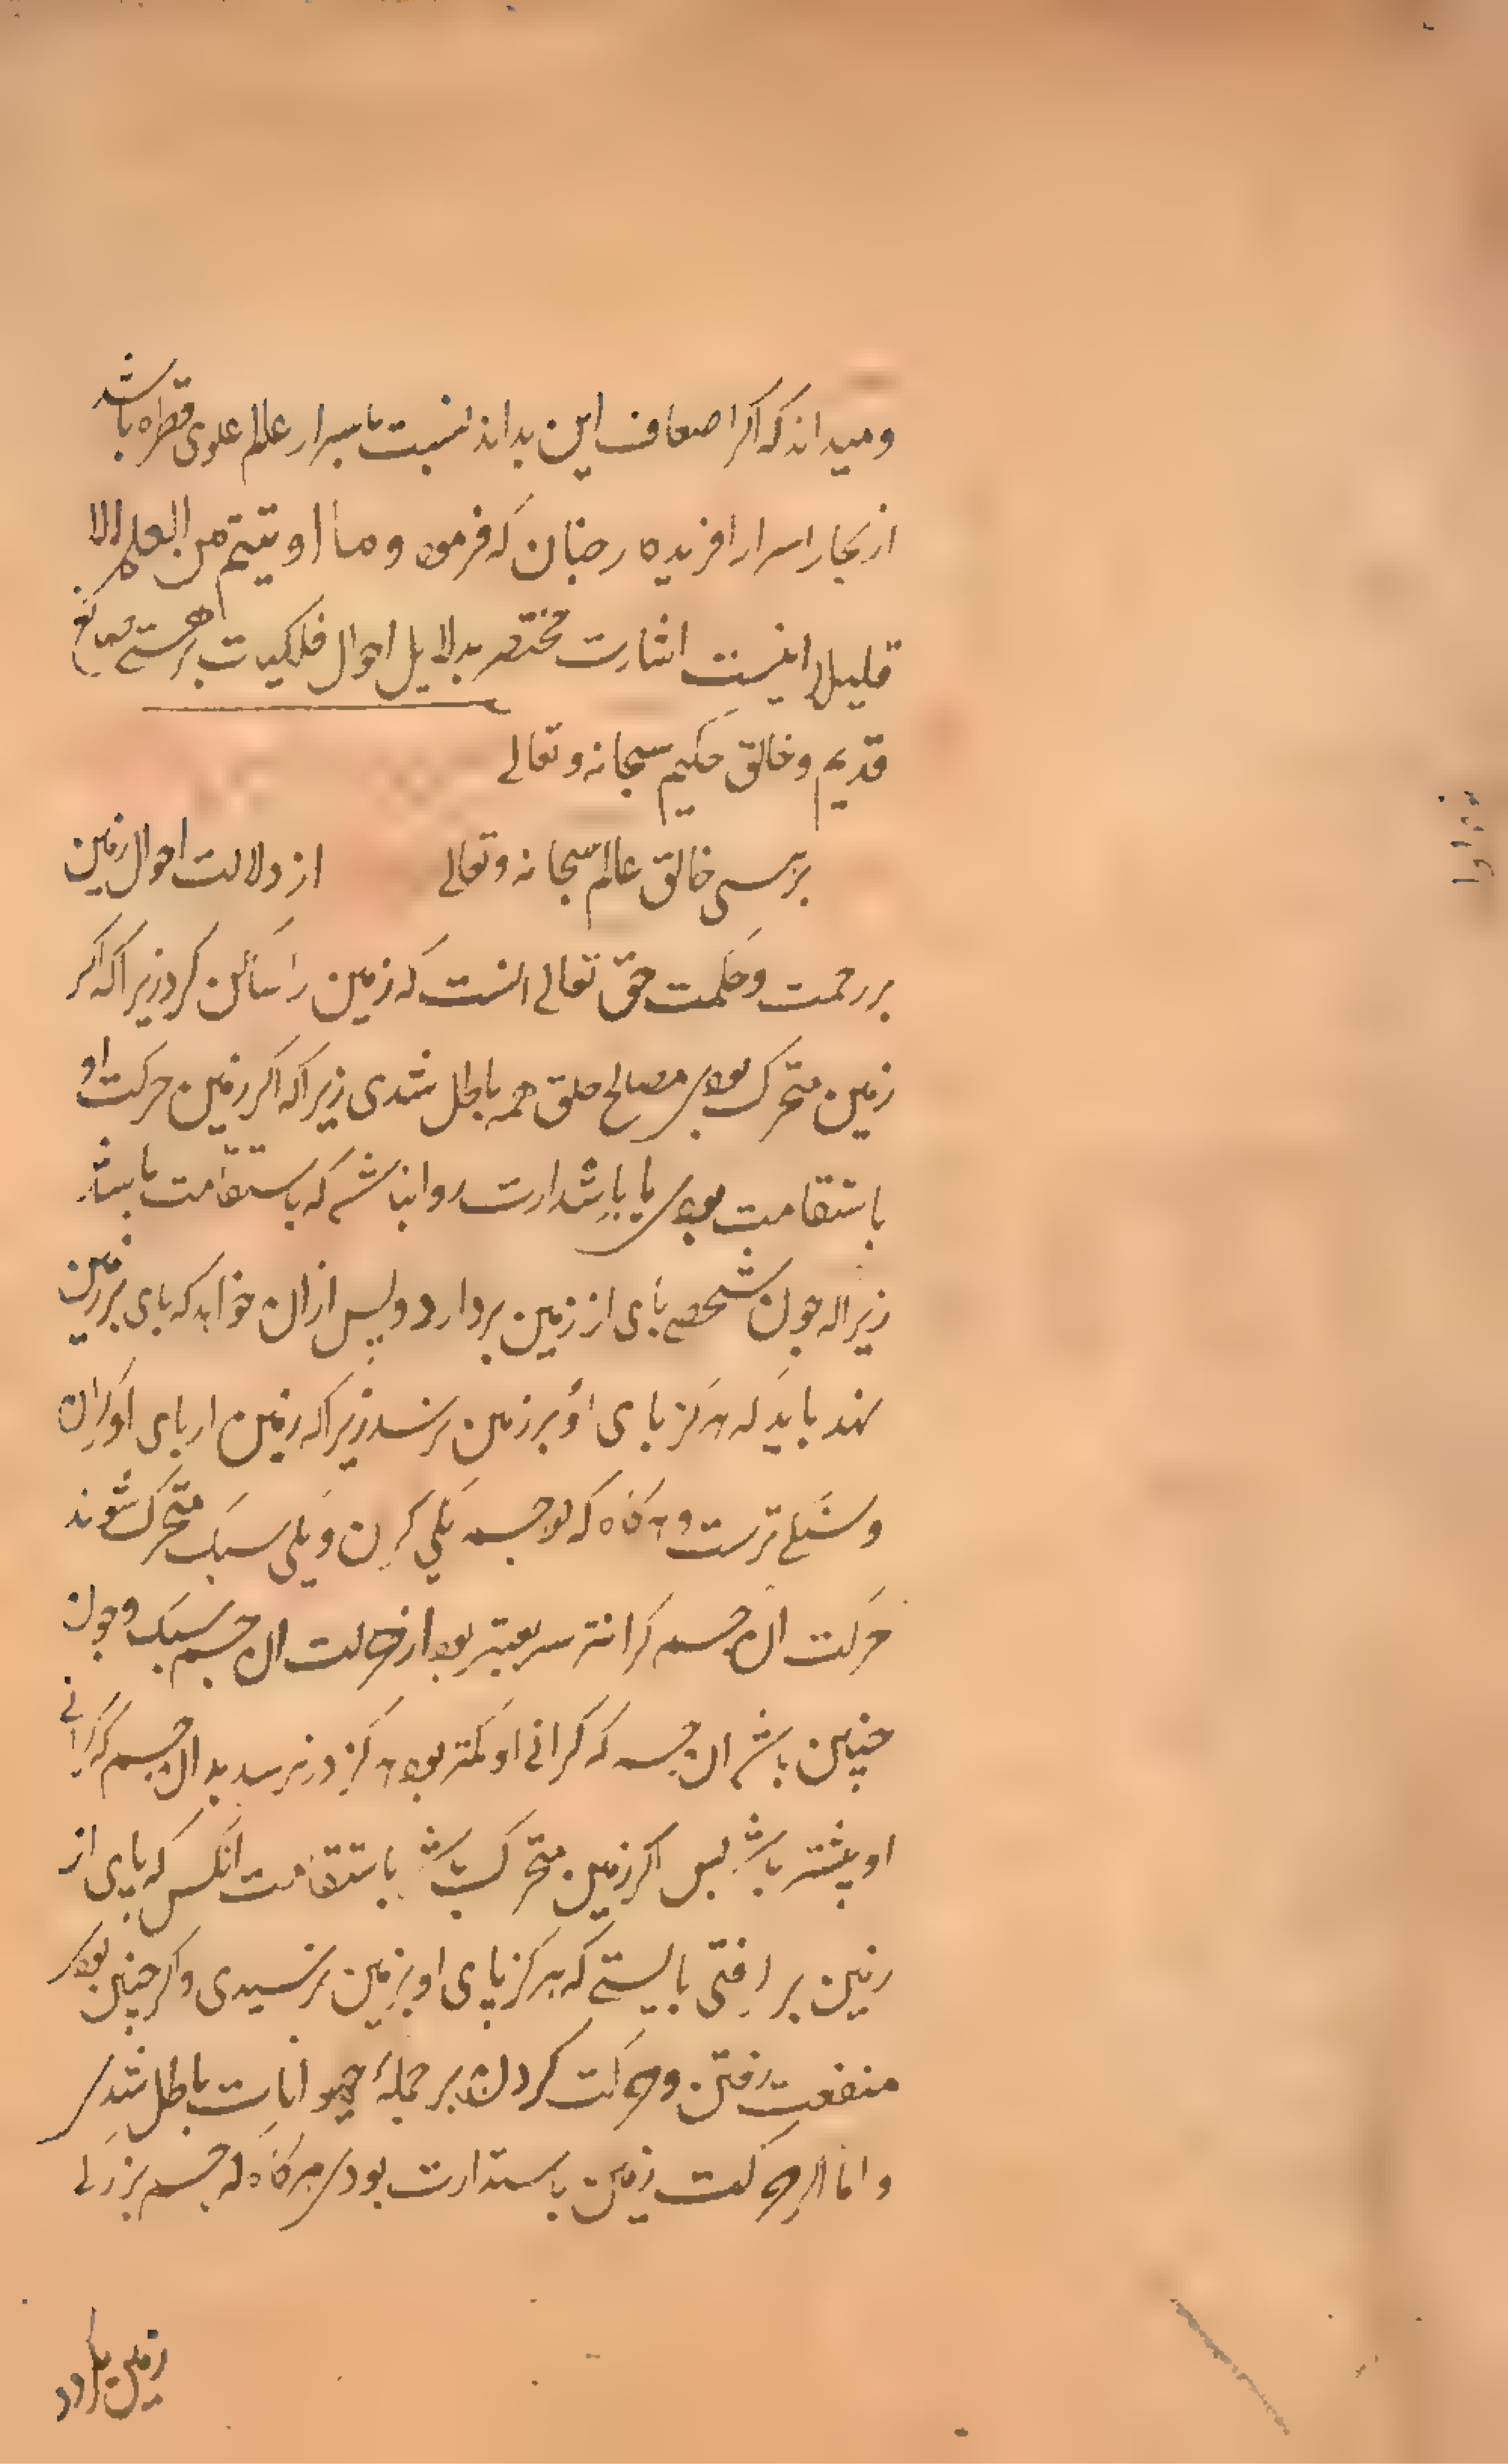 و میداند که اکر اضعاف این بداند نسبت باسرار عالم علوی قطره باشد
از بحار اسرار افریده رجنان که فرموده وما اوتیتم من العلم الا
قلیلا اینست اشارت مختصر بدلایل احوال فلکیات برهستی صانع
قدیم و خالق حکیم سبحانه و تعالی
برهستی خالق عالم سبحانه و تعالی از دلالت احوال زمین
بر رحمت و حکمت حق تعالی انست که زمین را ساکن کرد زیرا که اکر
زمین متحرک بودی مصالح خلق همه باطل شدی زیرا که اکر زمین حرکت او
باستقامت بودی یا باستدارت روا نباشد که باستقامت باشد
زیرا که جون شخصی بای از زمین بردارد و بس از ان خواهد که بای بر زمین
نهد باید که هرکز بای او بر زمین نرسد زیرا که زمین از بای او کران
و سنکی ترست و هرکاه که دو جسم یکی کران و یکی سبک متحرک شوند
حرکت ان جسم کرانتر سریعتر بود از حرکت ان جسم سبک و جون
جنین باشد ان جسم که کرانی او کمتر بود هرکز در نرسد بدان جسم که کرانی
او بیشتر باشد بس اکر زمین متحرک باشد باستقامت انکس که بای از
زمین بر کرفتی بایستی که هرکز پای او بزمین نرسیدی و اکر جنین بودی
منفعت رفتن و حرکت کردن بر جملۀ حیوانات باطل شدی
و اما اکر حرکت زمین باستدارت بودی هرکاه که جسم بزرک